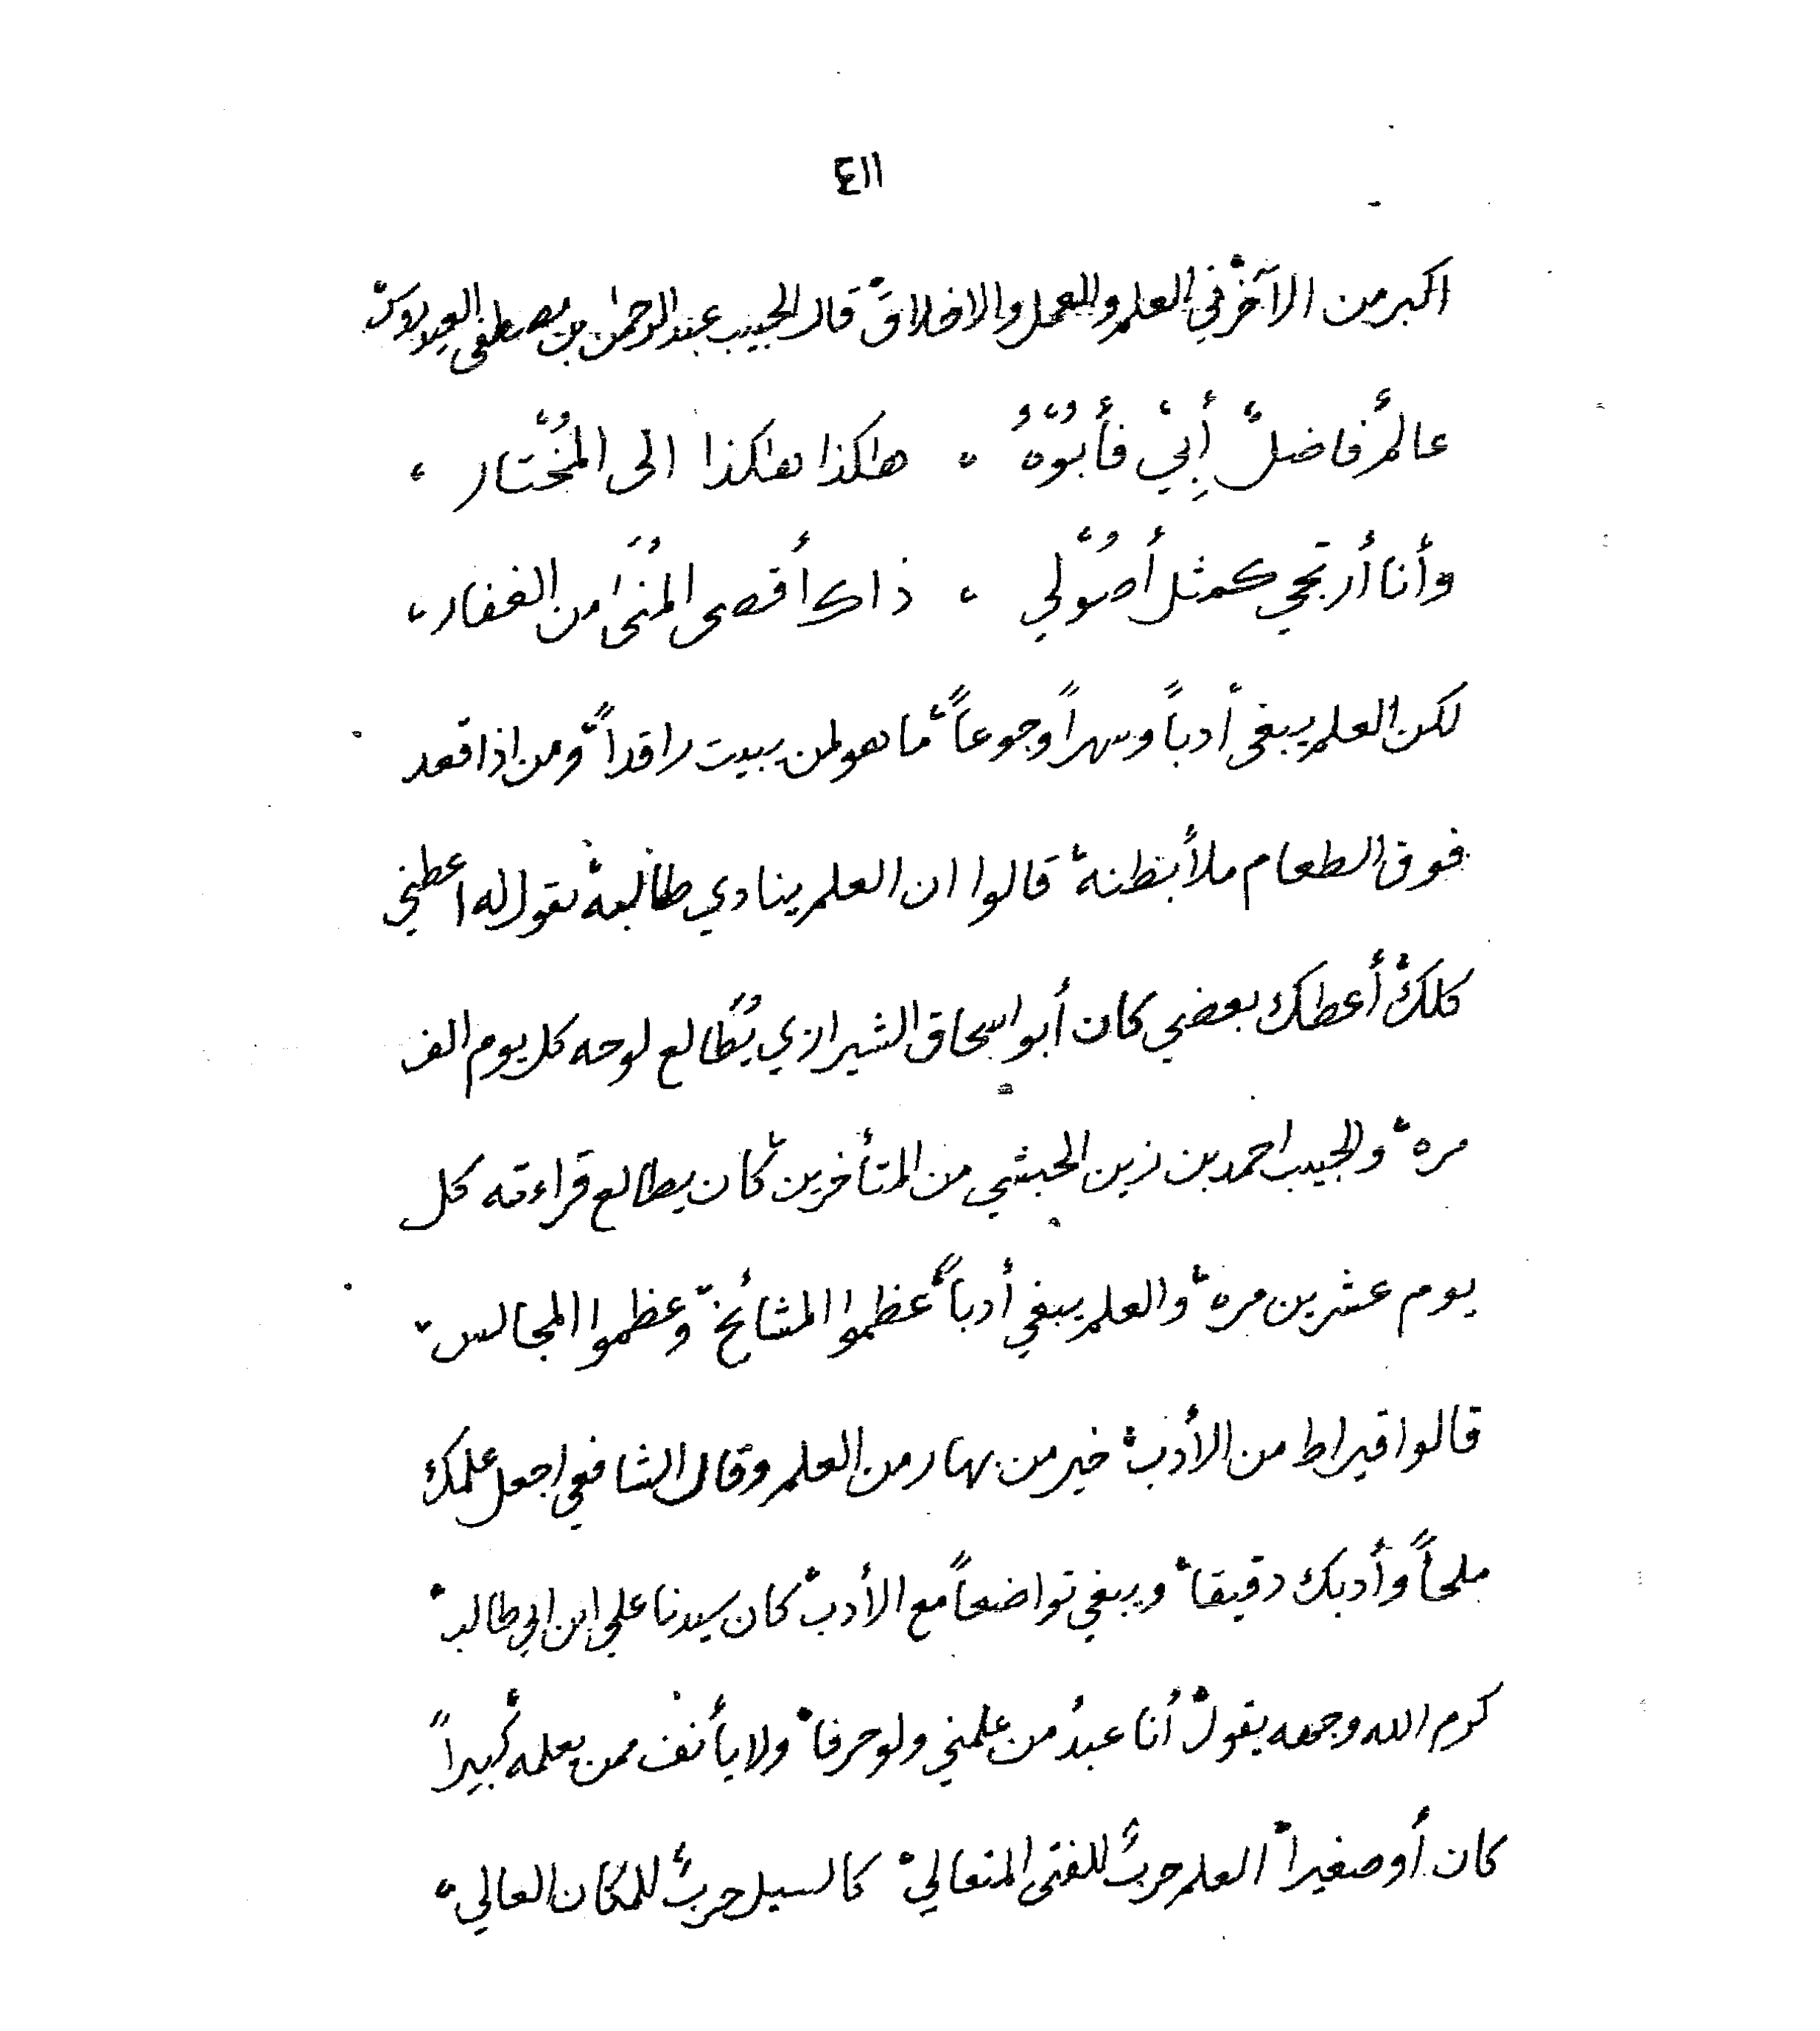 ٤١١
اكبر من الآخر في العلم والعمل والاخلاق، قال الحبيب عبدالرحمٰن بن مصطفى العيدروس،
عالمٌ فاضلٌ أَبِيْ فأبُوْهُ ، هاكذا هاكذا الى المُخْتار ،
وأنا أرتجي كمثل أصُوْلي ، ذاك أقصى المُنَىٰ من الغفار ،
لكن العلم يبغى أدباً وسهراً وجوعاً، ما هو لمن يبيت راقداً، ومن اذا قعد
فوق الطعام ملأ بطنه، قالوا ان العلم ينادي طالبه، يقول له اعطني
كلك أعطك بعضي كان أبو اسحاق الشيرازي يُطالع لوحه كل يوم الف
مره، والحبيب احمد بن زين الحبشي من المتأخرين، كان يطالع قراءته كل
يوم عشرين مره، والعلم يبغي أدباً، عظموا المشائخ، وعظموا المجالس،
قالوا قيراط من الأدب، خير من بهار من العلم وقال الشافعي اجعل علمك
ملحاً وأدبك دقيقا، ويبغي تواضعاً مع الأدب، كان سيدنا علي ابن ابي طالب،
كرم الله وجهه يقول، أنا عبدُ من علمني ولو حرفا، ولا يأنف ممن يعلمه كبيراً
كان أو صغيرا، العلم حربٌ للفتى المتعالي، كالسيل حربٌ للمكان العالي،